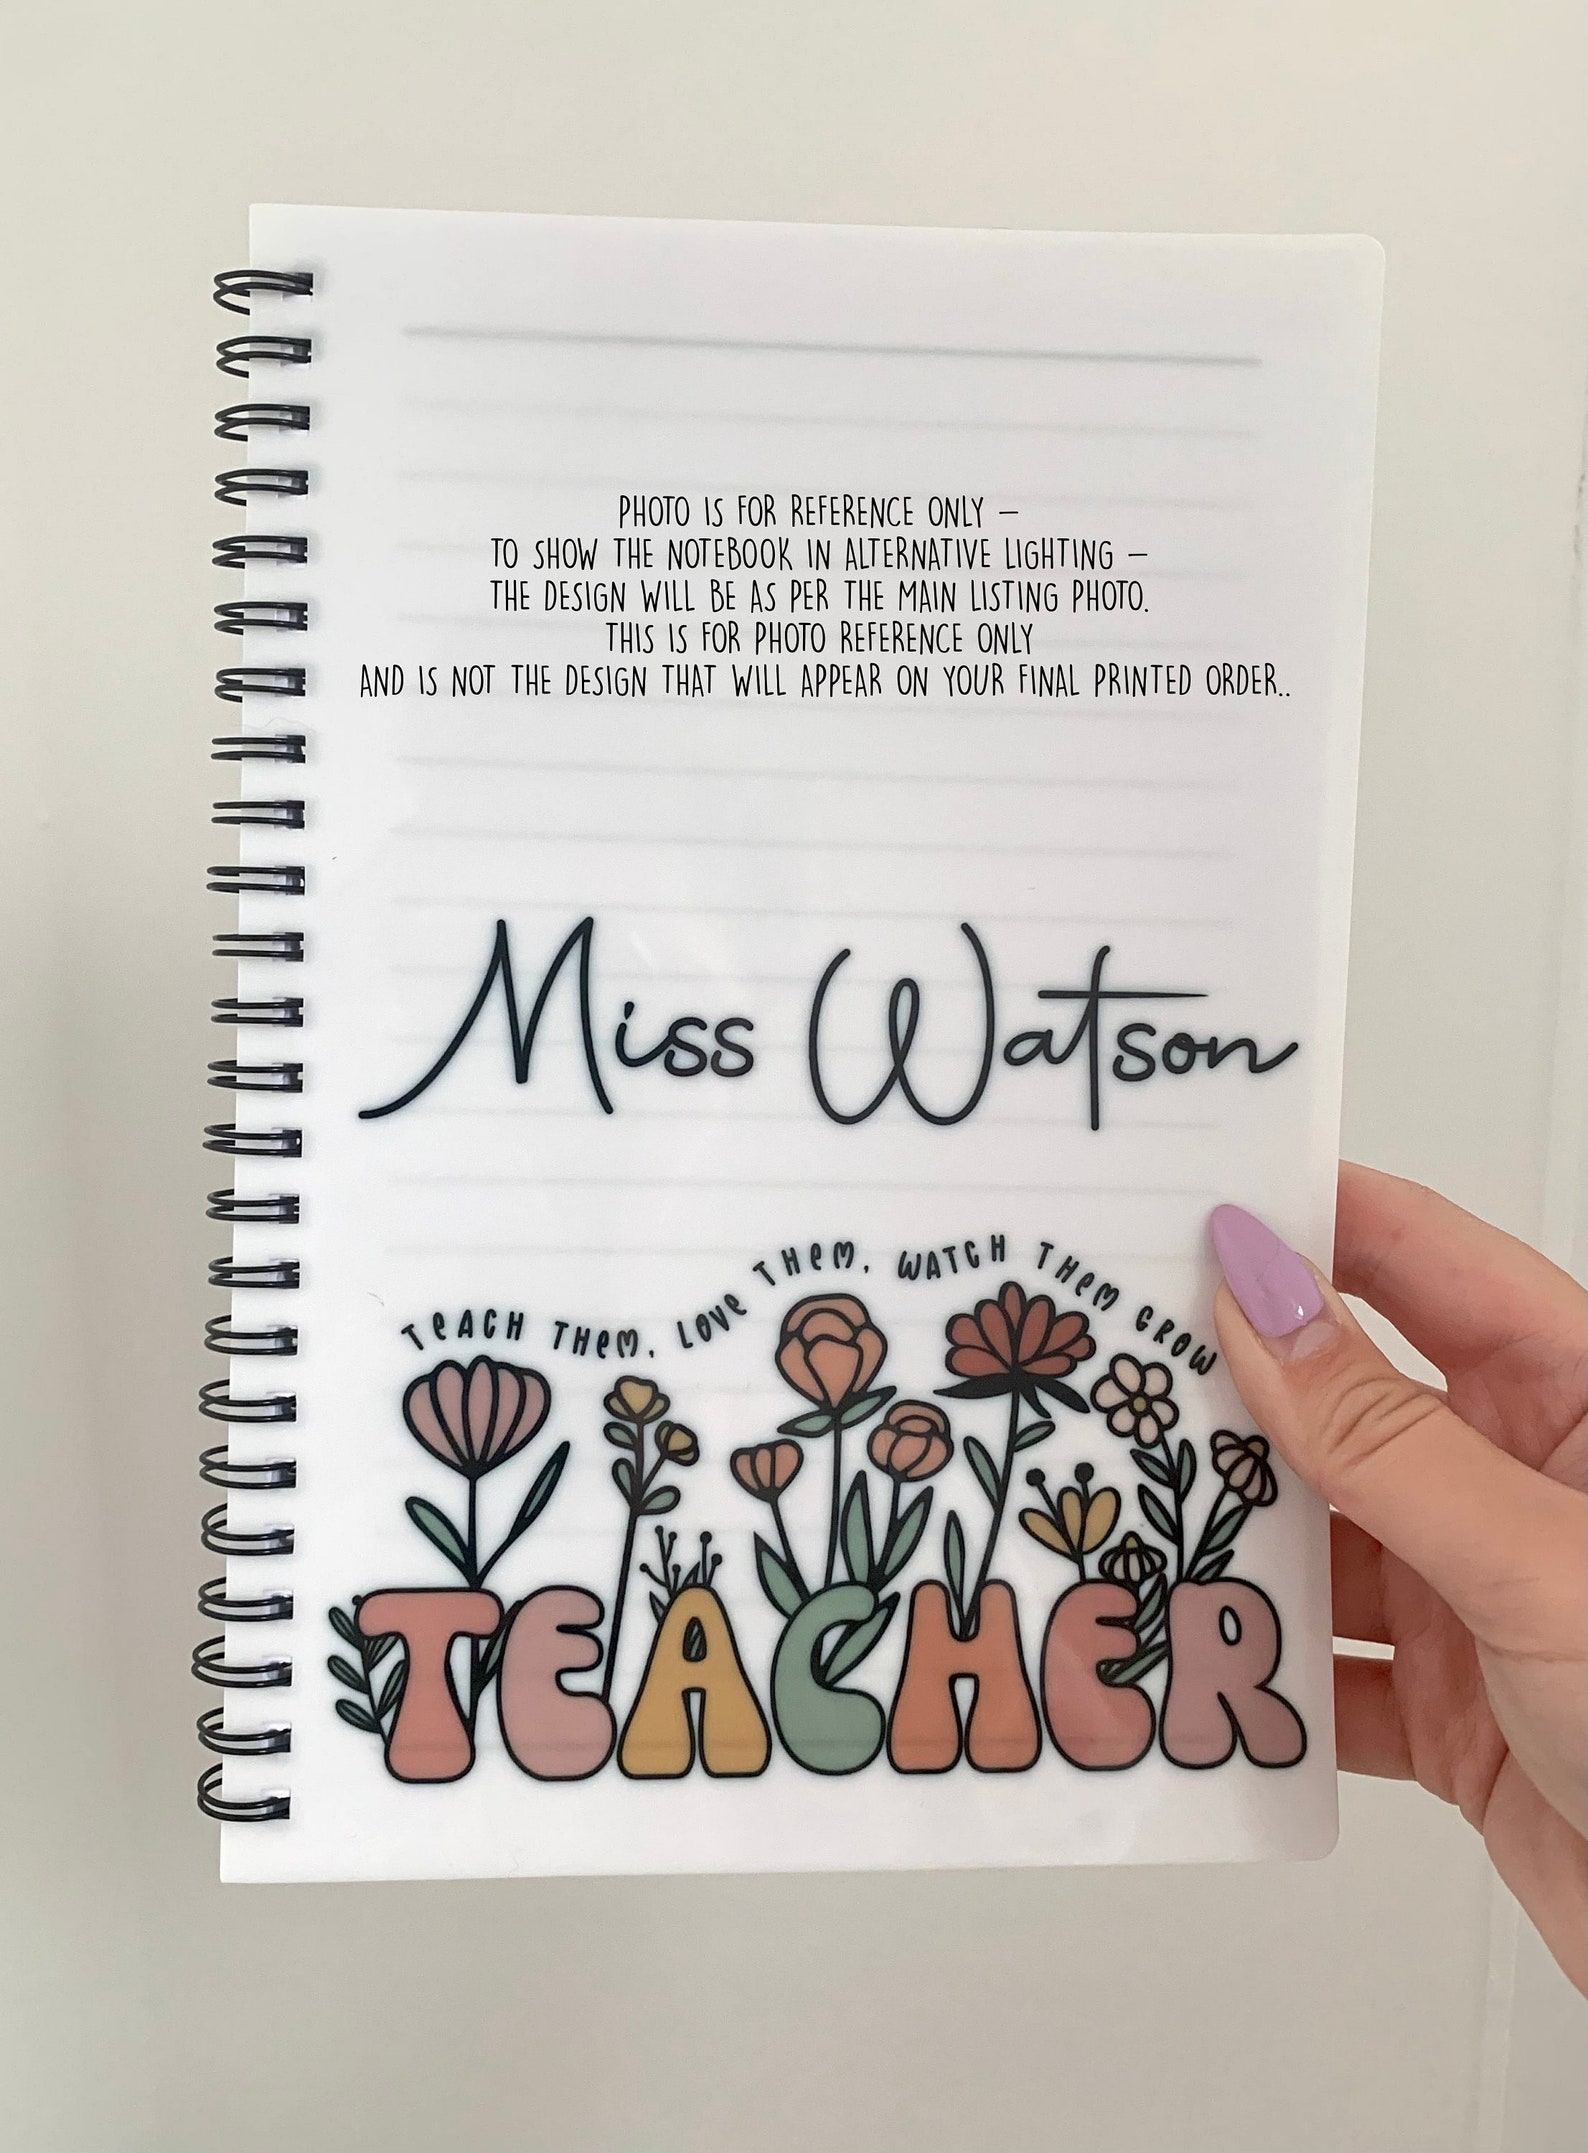 PHOTO IS FOR REFERENCE ONLY –
TO SHOW THE NOTEBOOK IN ALTERNATIVE LIGHTING –
THE DESIGN WILL BE AS PER THE MAIN LISTING PHOTO.
THIS IS FOR PHOTO REFERENCE ONLY
AND IS NOT THE DESIGN THAT WILL APPEAR ON YOUR FINAL PRINTED ORDER..
Miss Watson
TEACH THEM, LOVE THEM, WATCH THEM GROW
TEACHER